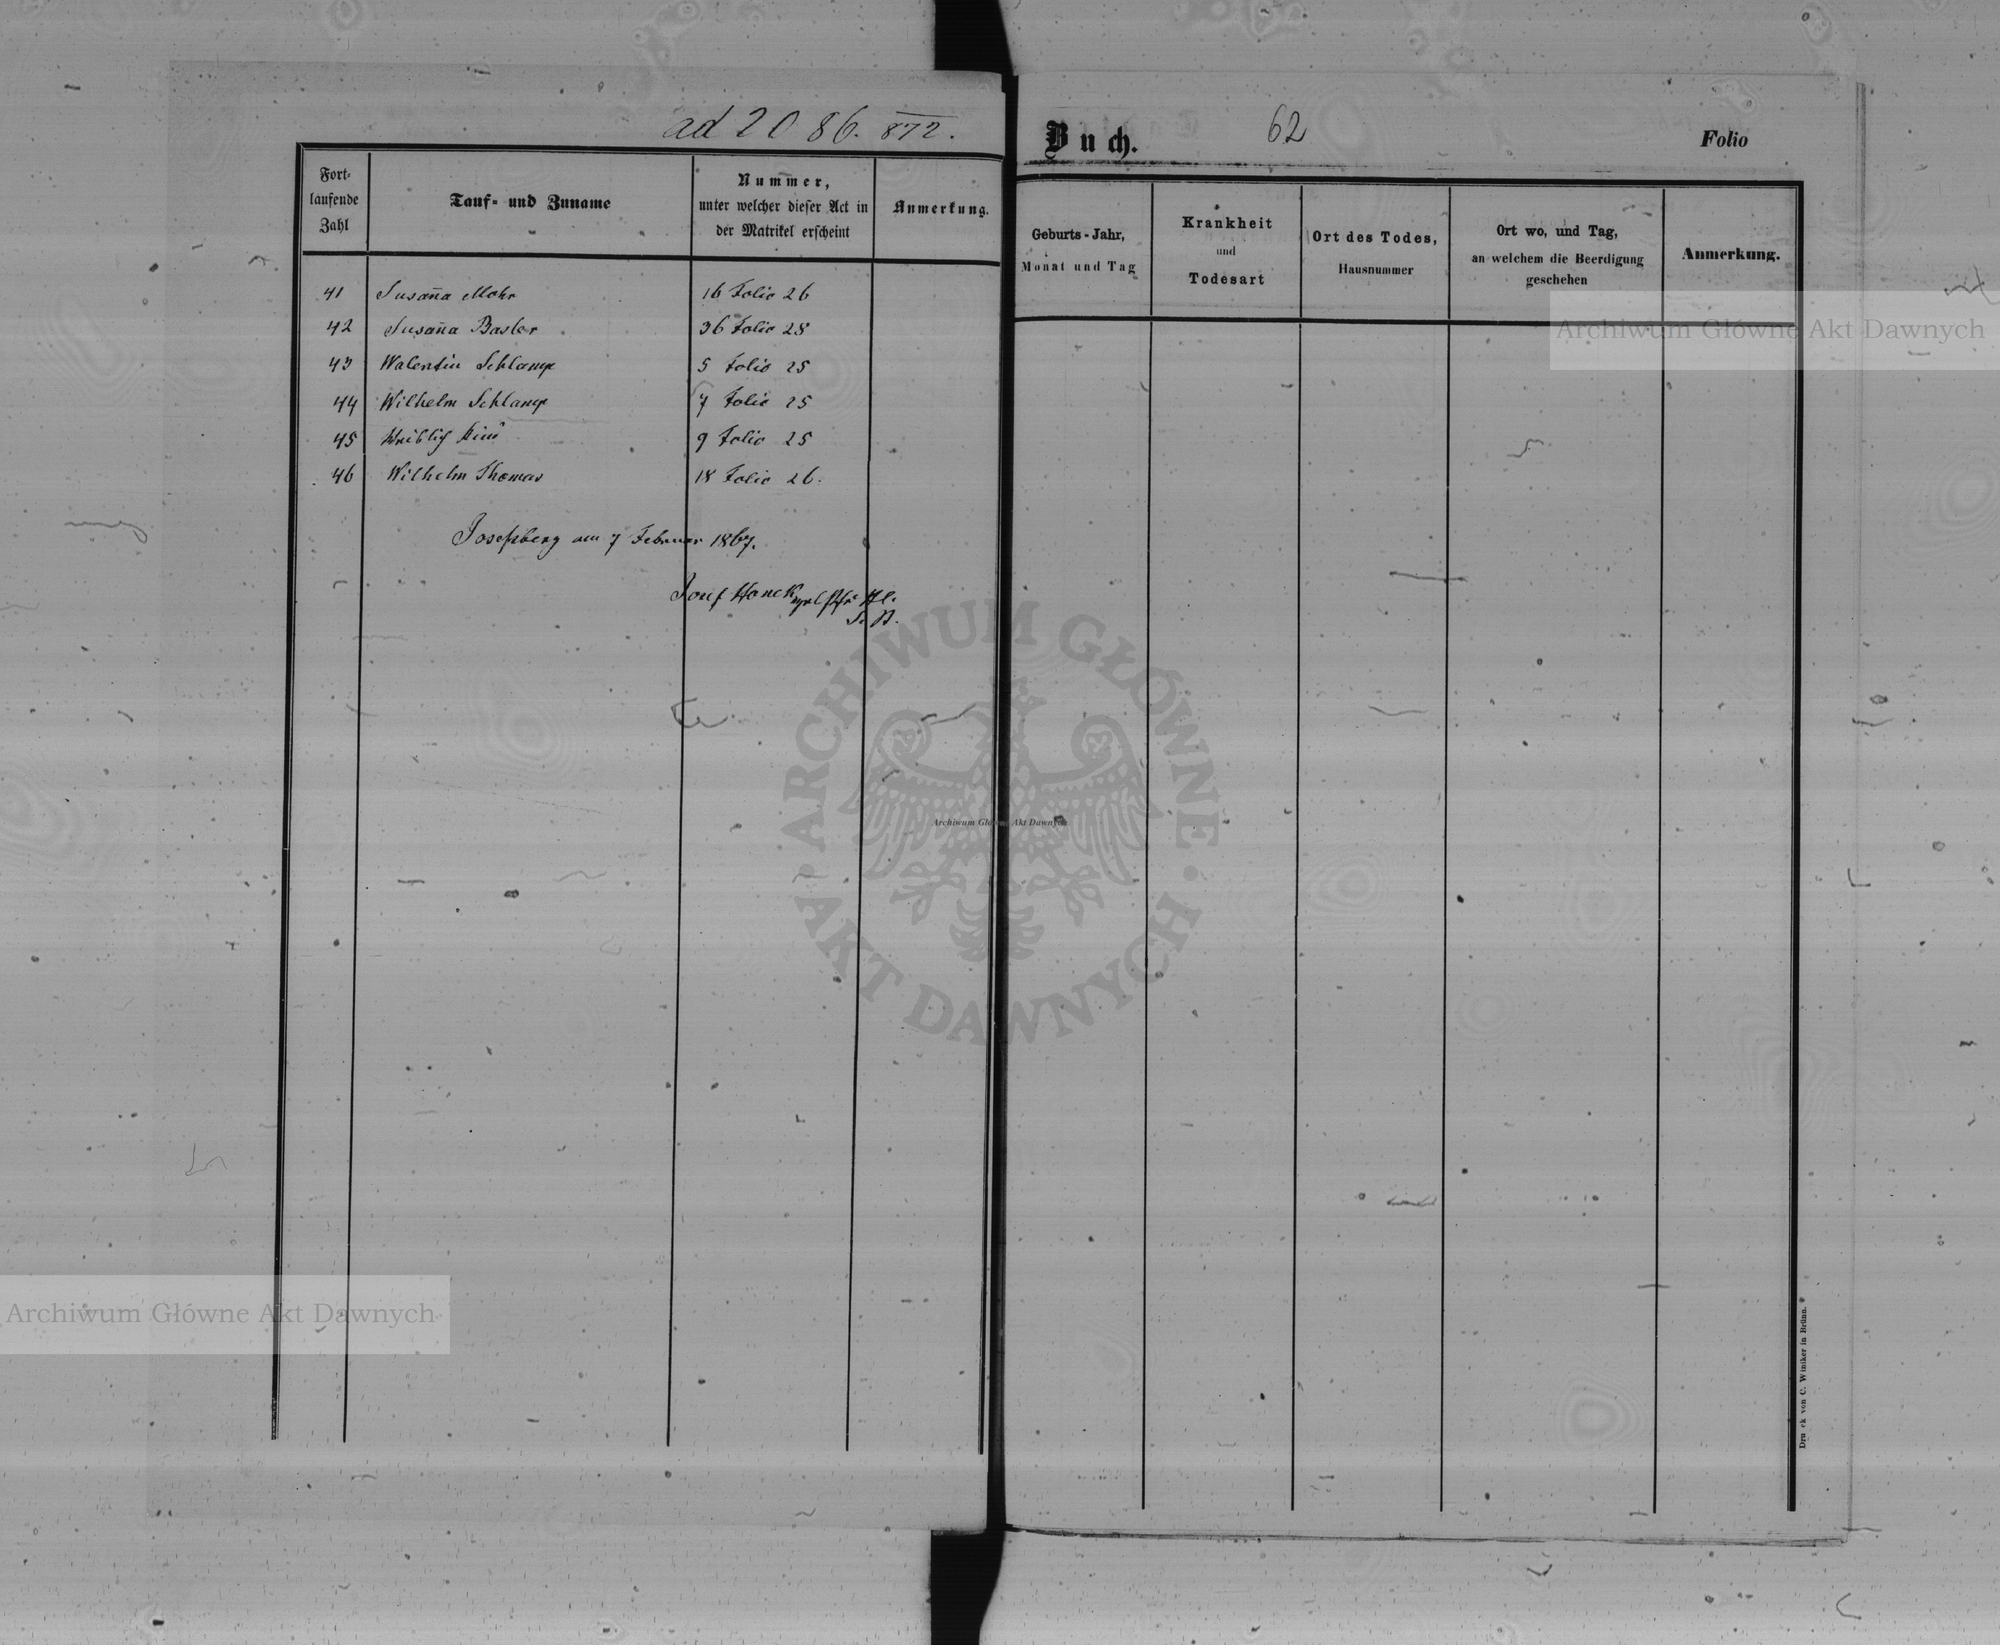 ad 2086. 872.
Fort-
laufende
Zahl
Tauf- und Zuname
Nummer,
unter welcher dieser Act in
der Matrikel erscheint
Anmerkung.
41 Susana Mohr 16 Folio 26
42 Susana Basler 36 Folio 28
43 Walentin Schlamp 5 Folio 25
44 Wilhelm Schlamp 7 Folio 25
45 Weiblich Kind 9 Folio 25
46 Wilhelm Thomas 18 Folio 26.
Josefsberg am 7 Februar 1867.
Josef Hanek
Buch.
62
Folio
Geburts-Jahr,
Monat und Tag
Krankheit
und
Todesart
Ort des Todes,
Hausnummer
Ort wo, und Tag,
an welchem die Beerdigung
geschehen
Anmerkung.
Druck von C. Winiker in Brünn.
Archiwum Główne Akt Dawnych
ARCHIWUM GŁÓWNE · AKT DAWNYCH ·
Archiwum Główne Akt Dawnych
Archiwum Główne Akt Dawnych